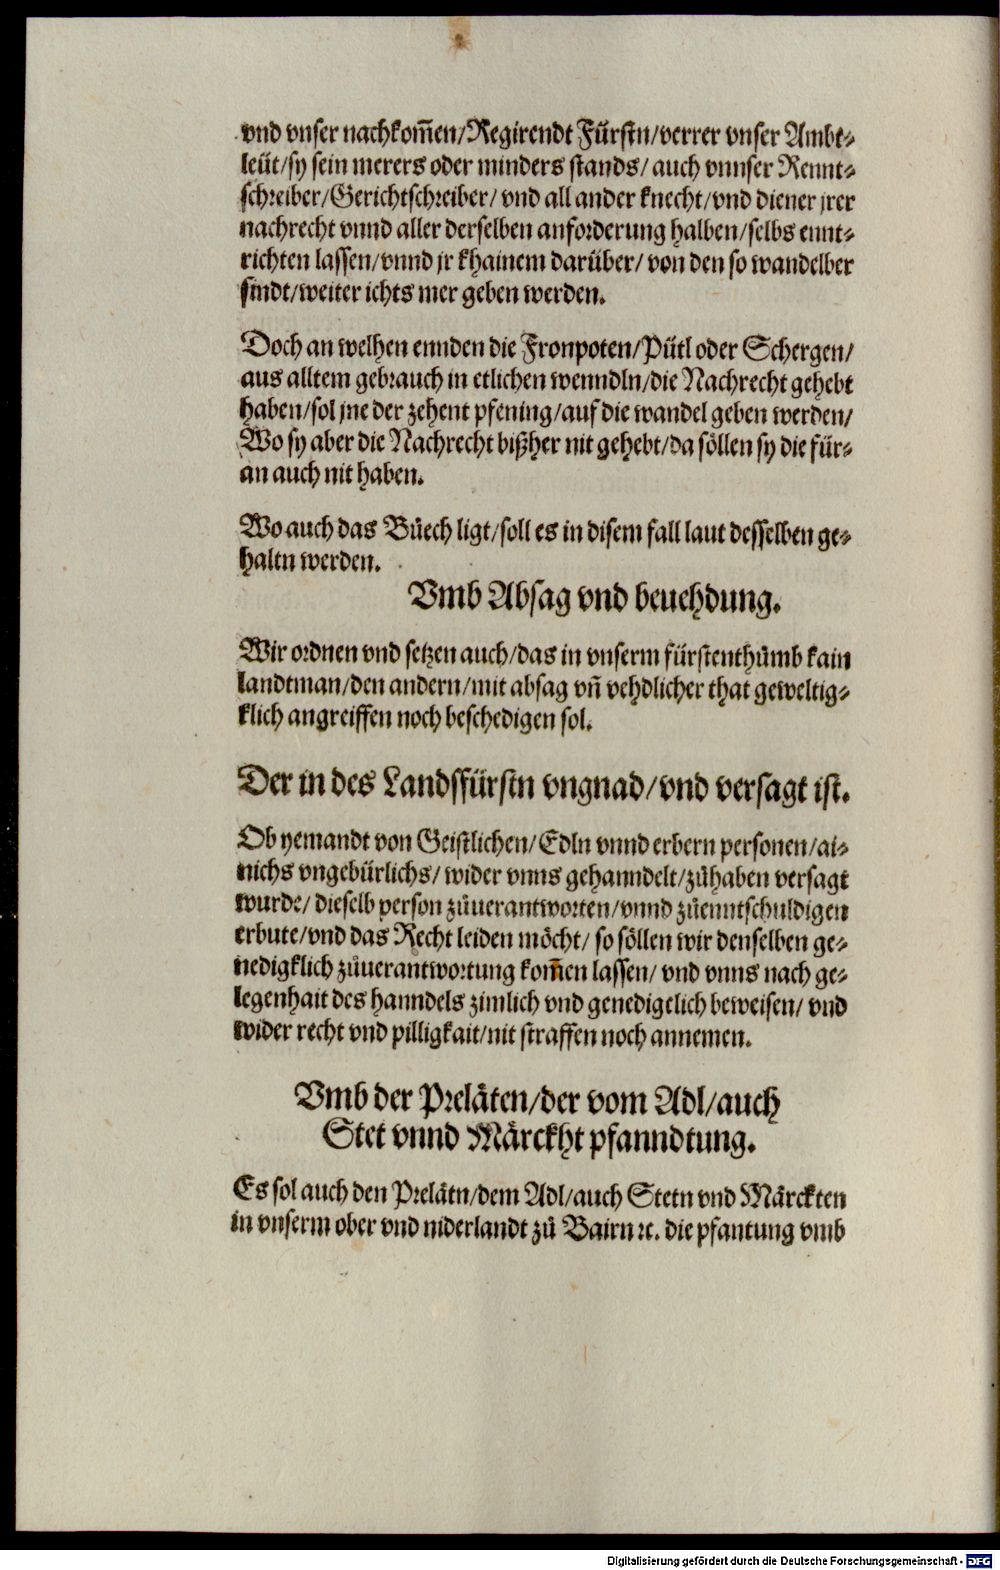 vnd vnser nachkom̃en/Regirendt Fürstn/verrer vnser Ambt⸗
leüt/sy sein merers oder minders stands/ auch vnnser Rennt⸗
schreiber/Gerichtschreiber/ vnd all ander knecht/vnd diener jrer
nachrecht vnnd aller derselben anforderung halben/selbs ennt⸗
richten lassen/vnnd jr khainem darüber/ von den so wandelber
sindt/weiter ichts mer geben werden.
Doch an welhen ennden die Fronpoten/Pütl oder Schergen/
aus alltem gebrauch in etlichen wenndln/die Nachrecht gehebt
haben/sol jne der zehent pfening/auf die wandel geben werden/
Wo sy aber die Nachrecht bißher nit gehebt/da söllen sy die für⸗
an auch nit haben.
Wo auch das Büech ligt/soll es in disem fall laut desselben ge⸗
haltn werden.
Vmb Absag vnd beuehdung.
Wir ordnen vnd setzen auch/das in vnserm fürstenthůmb kain
landtman/den andern/mit absag vñ vehdlicher that geweltig⸗
klich angreiffen noch beschedigen sol.
Der in des Landsfürstn vngnad/vnd versagt ist.
Ob yemandt von Geistlichen/Edln vnnd erbern personen/ai⸗
nichs vngebürlichs/ wider vnns gehanndelt/zůhaben versagt
wurde/ dieselb person zůuerantworten/vnnd zůenntschuldigen
erbute/vnd das Recht leiden möcht/ so söllen wir denselben ge⸗
nedigklich zůuerantwortung kom̃en lassen/ vnd vnns nach ge⸗
legenhait des hanndels zimlich vnd genedigelich beweisen/ vnd
wider recht vnd pilligkait/nit straffen noch annemen.
Vmb der Preläten/der vom Adl/auch
Stet vnnd Märckht pfanndtung.
Es sol auch den Prelätn/dem Adl/auch Stetn vnd Märckten
in vnserm ober vnd niderlandt zů Bairn ꝛc. die pfantung vmb
Digitalisierung gefördert durch die Deutsche Forschungsgemeinschaft - DFG